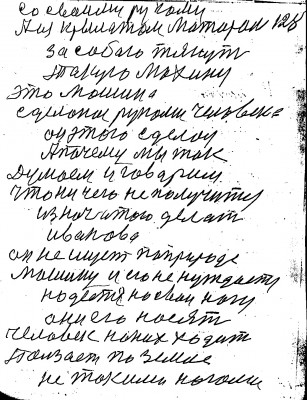 со своими руками
А он крылатом Мотором 128
за собою тянут
такую Махину
это Машина
сделоная руками человека
он этого сделал
А почему мы так
Думаем и говарим
что ни чего не получится
из начитого делат
иванова
он не ищет поприроде
Машину и он не нуждается
надеется на свои ногу
они его носят
человек на них ходит
ползает по земле
не такими ногами